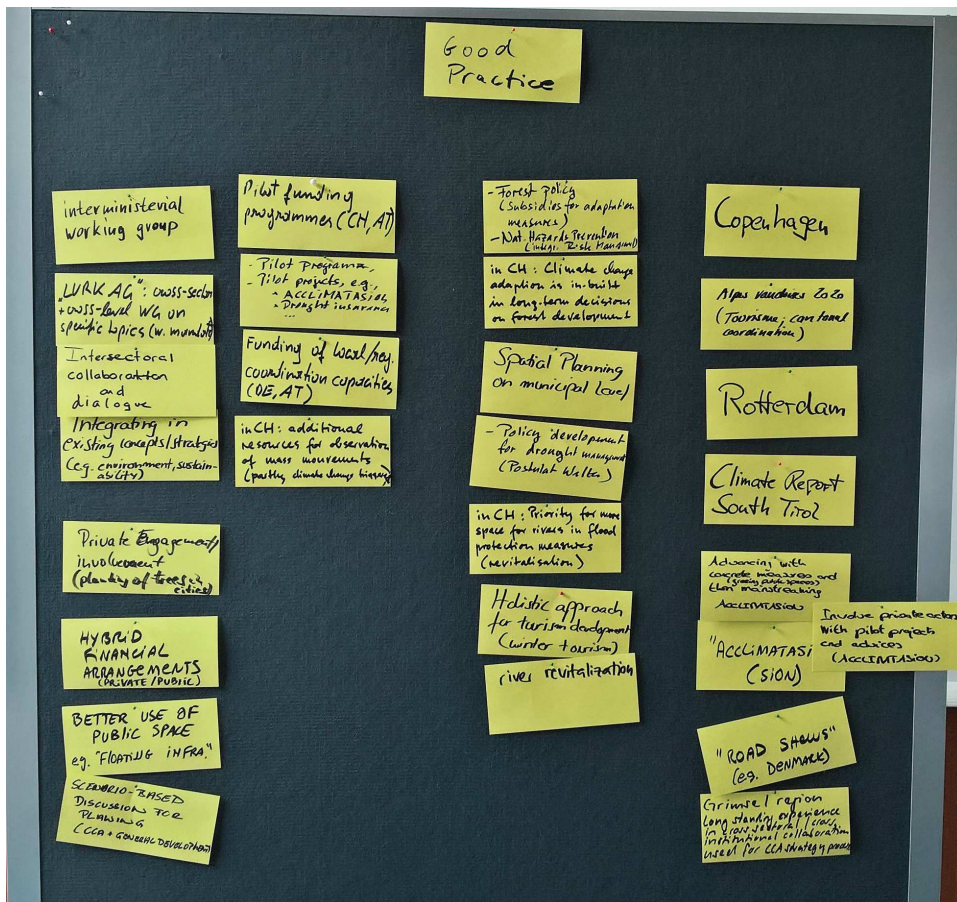 Good
Practice
interministerial
working group
"LURK AG": cross-sector
+ cross-level WG on
specific topics (w. mandate)
Intersectoral
collaboration
and
dialogue
Integrating in
existing concepts/strategies
(e.g. environment, sustain-
ability)
Private Engagement/
involvement
(planting of trees in
cities)
HYBRID
FINANCIAL
ARRANGEMENTS
(PRIVATE/PUBLIC)
BETTER USE OF
PUBLIC SPACE
eg. "FLOATING INFRA."
SCENORIO-BASED
DISCUSSION FOR
PLANNING
(CCA + GENERAL DEVELOPMENT)
Pilot funding
programmes (CH, AT)
- Pilot programs,
- Pilot projects, e.g.,
- ACCLIMATASION
- Drought insurance
...
Funding of local/reg.
coordination capacities
(DE, AT)
in CH: additional
resources for observation
of mass movements
(partly climate change triggered)
- Forest policy
(Subsidies for adaptation
measures)
- Nat. Hazards Prevention
(integr. Risk Managmt)
in CH: Climate change
adaption is in-built
in long-term decisions
on forest development
Spatial Planning
on municipal level
- Policy development
for drought managmt
(Postulat Walter)
in CH: Priority for more
space for rivers in flood
protection measures
(revitalisation)
Holistic approach
for tourism development
(winter tourism)
river revitalization
Copenhagen
Alpes vaudoises 2020
(Tourisme: cantonal
coordination)
Rotterdam
Climate Report
South Tirol
Advancing with
concrete measures and
(greening public spaces)
then mainstreaming
ACCLIMATASION
Involve private actors
with pilot projects
and advices
(ACCLIMTASION)
"ACCLIMATASI
(SION)
"ROAD SHOWS"
(e.g. DENMARK)
Grimsel region
Long standing experience
in cross sectoral / cross
institutional collaboration
used for CCA strategy process